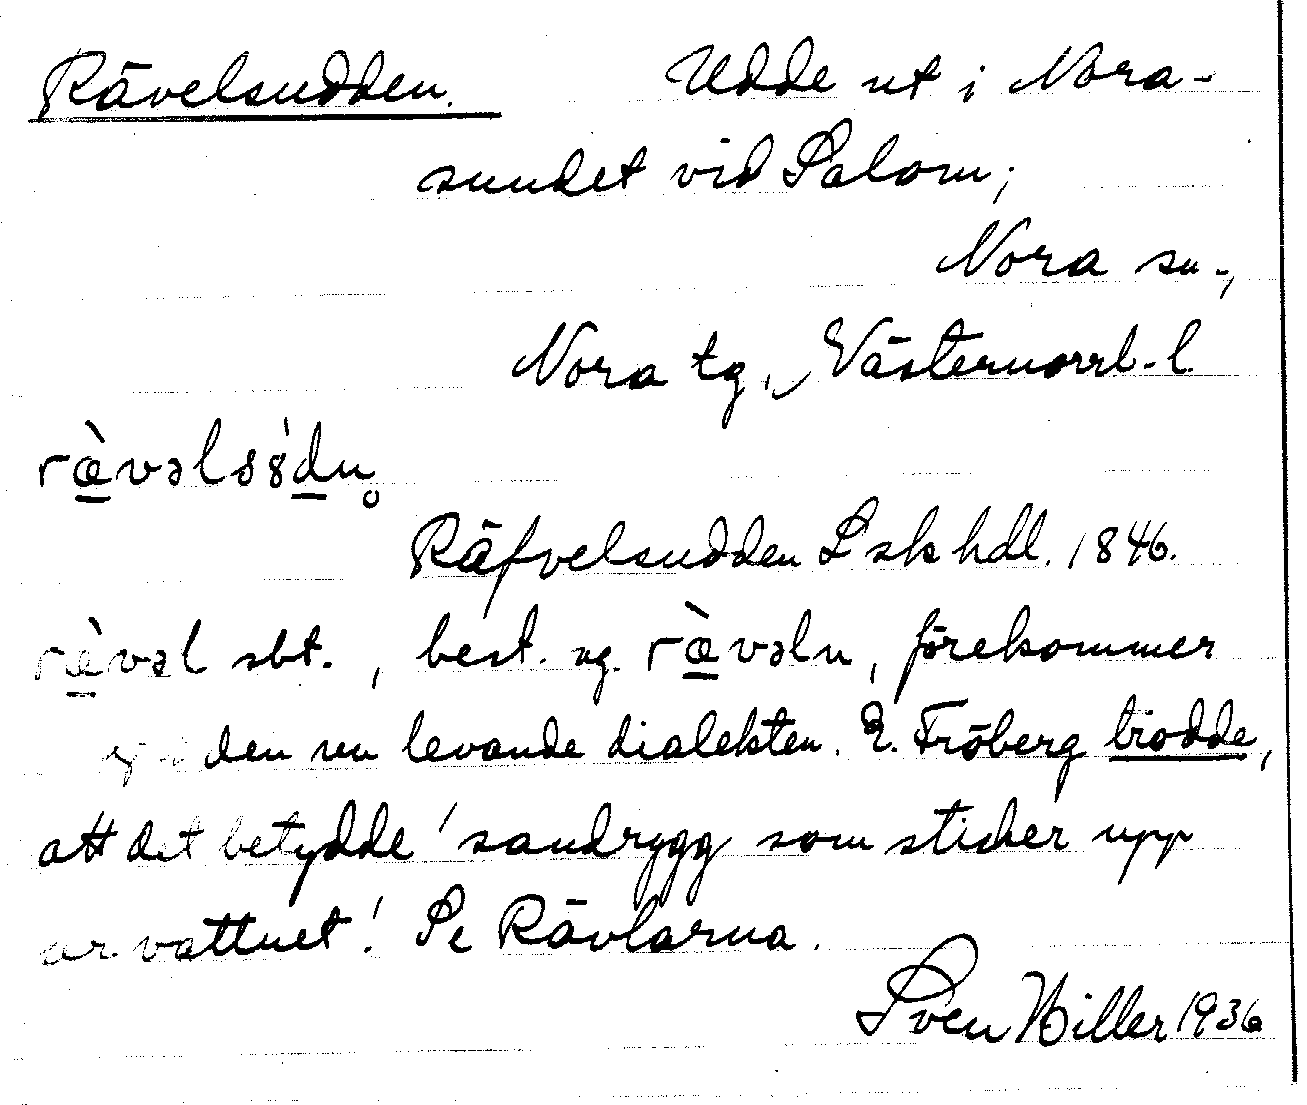 Rävelsudden. Udde ut i Nora-
sundet vid Salom;
Nora sn.,
Nora tg, Västernorrl. l.
ræ̀vəlss̀dn̥
Räfvelsudden L sk hdl. 1846.
ræ̀vəl sbt., best. sg. ræ̀vəln, förekommer
ej i den nu levande dialekten. E. Fröberg trodde,
att det betydde 'sandrygg som sticker upp
ur vattnet'. Se Rävlarna.
Sven Hiller 1936